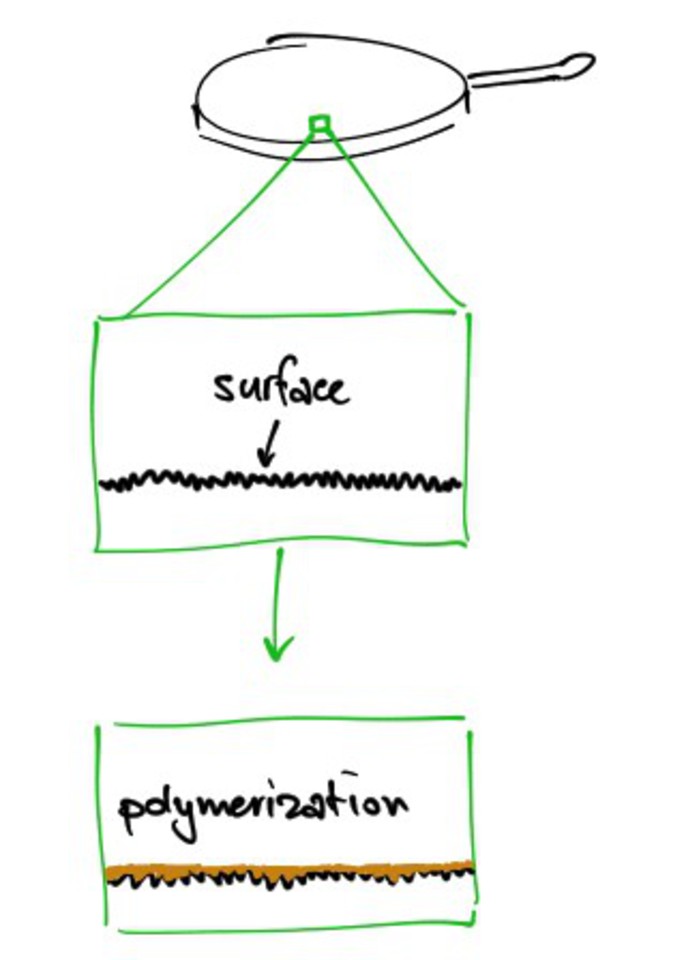 surface
polymerization